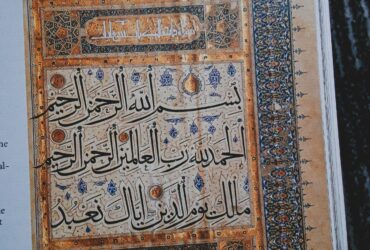 بسم الله الرحمن الرحيم
الحمد لله رب العالمين الرحمن الرحيم
مالك يوم الدين إياك نعبد
he
al-